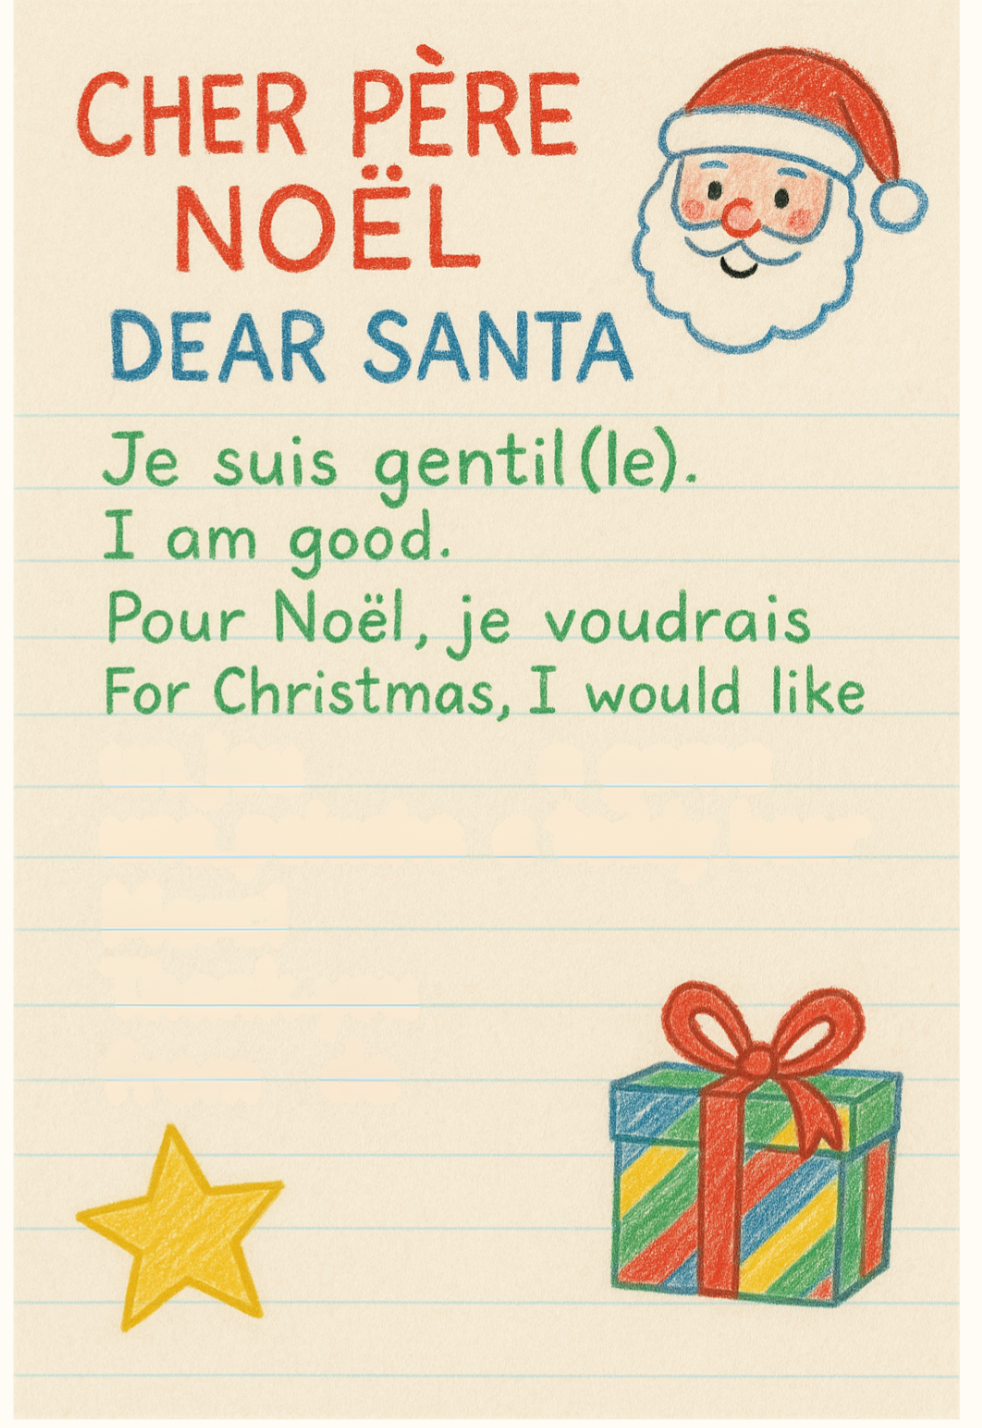 CHER PÈRE
NOËL
DEAR SANTA
Je suis gentil(le).
I am good.
Pour Noël, je voudrais
For Christmas, I would like